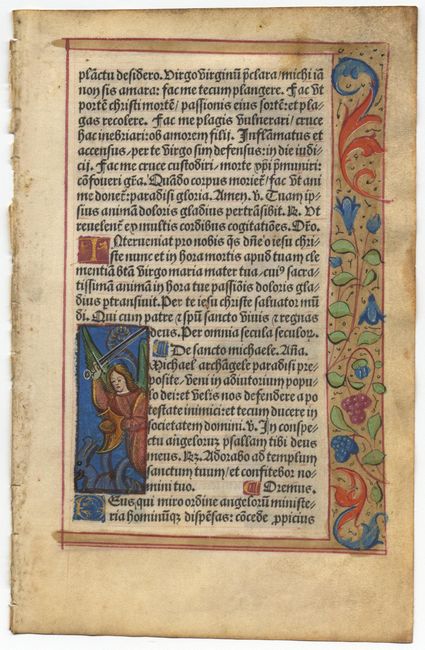 plāctu desidero. Virgo virginū p̄clara/ michi iā
non sis amara: fac me tecum plangere. Fac vt
portē christi mortē/ passionis eius sortē: et pla-
gas recolere. Fac me plagis vulnerari/ cruce
hac inebriari: ob amorem filij. Inflāmatus et
accensus/ per te virgo sim defensus: in die iudi-
cij. Fac me cruce custodiri/ morte xp̄i p̄muniri:
cōfoueri gr̄a. Quādo corpus moriet̄/ fac vt ani
me donet̄: paradisi gloria. Amen. v. Tuam ip-
sius animā doloris gladius pertrāsibit. R. Vt
reuelent̄ ex multis cordibus cogitatiōes. Or̄o.
INterueniat pro nobis q̄s dn̄e iesu chri-
ste nunc et in hora mortis apud tuam cle
mentiā btā virgo maria mater tua/ cuiꝰ sacra-
tissimā animā in hora tue passiōis doloris gla-
dius ptransiuit. Per te iesu christe saluator mū
di. Qui cum patre et spū sancto viuis et regnas
deus. Per omnia secula seculoꝝ.
De sancto michaele. Añā.
Michael archāgele paradisi pre-
posite/ veni in adiutorium popu
lo dei: et velis nos defendere a po
testate inimici: et tecum ducere in
societatem domini. v. In conspe-
ctu angeloruꝫ psallam tibi deus
meus. R. Adorabo ad templum
sanctum tuum/ et confitebor no-
mini tuo. Oremus.
DEus, qui miro ordine angelorū ministe-
ria hominūqꝫ dispēsas: cōcede p̱picius